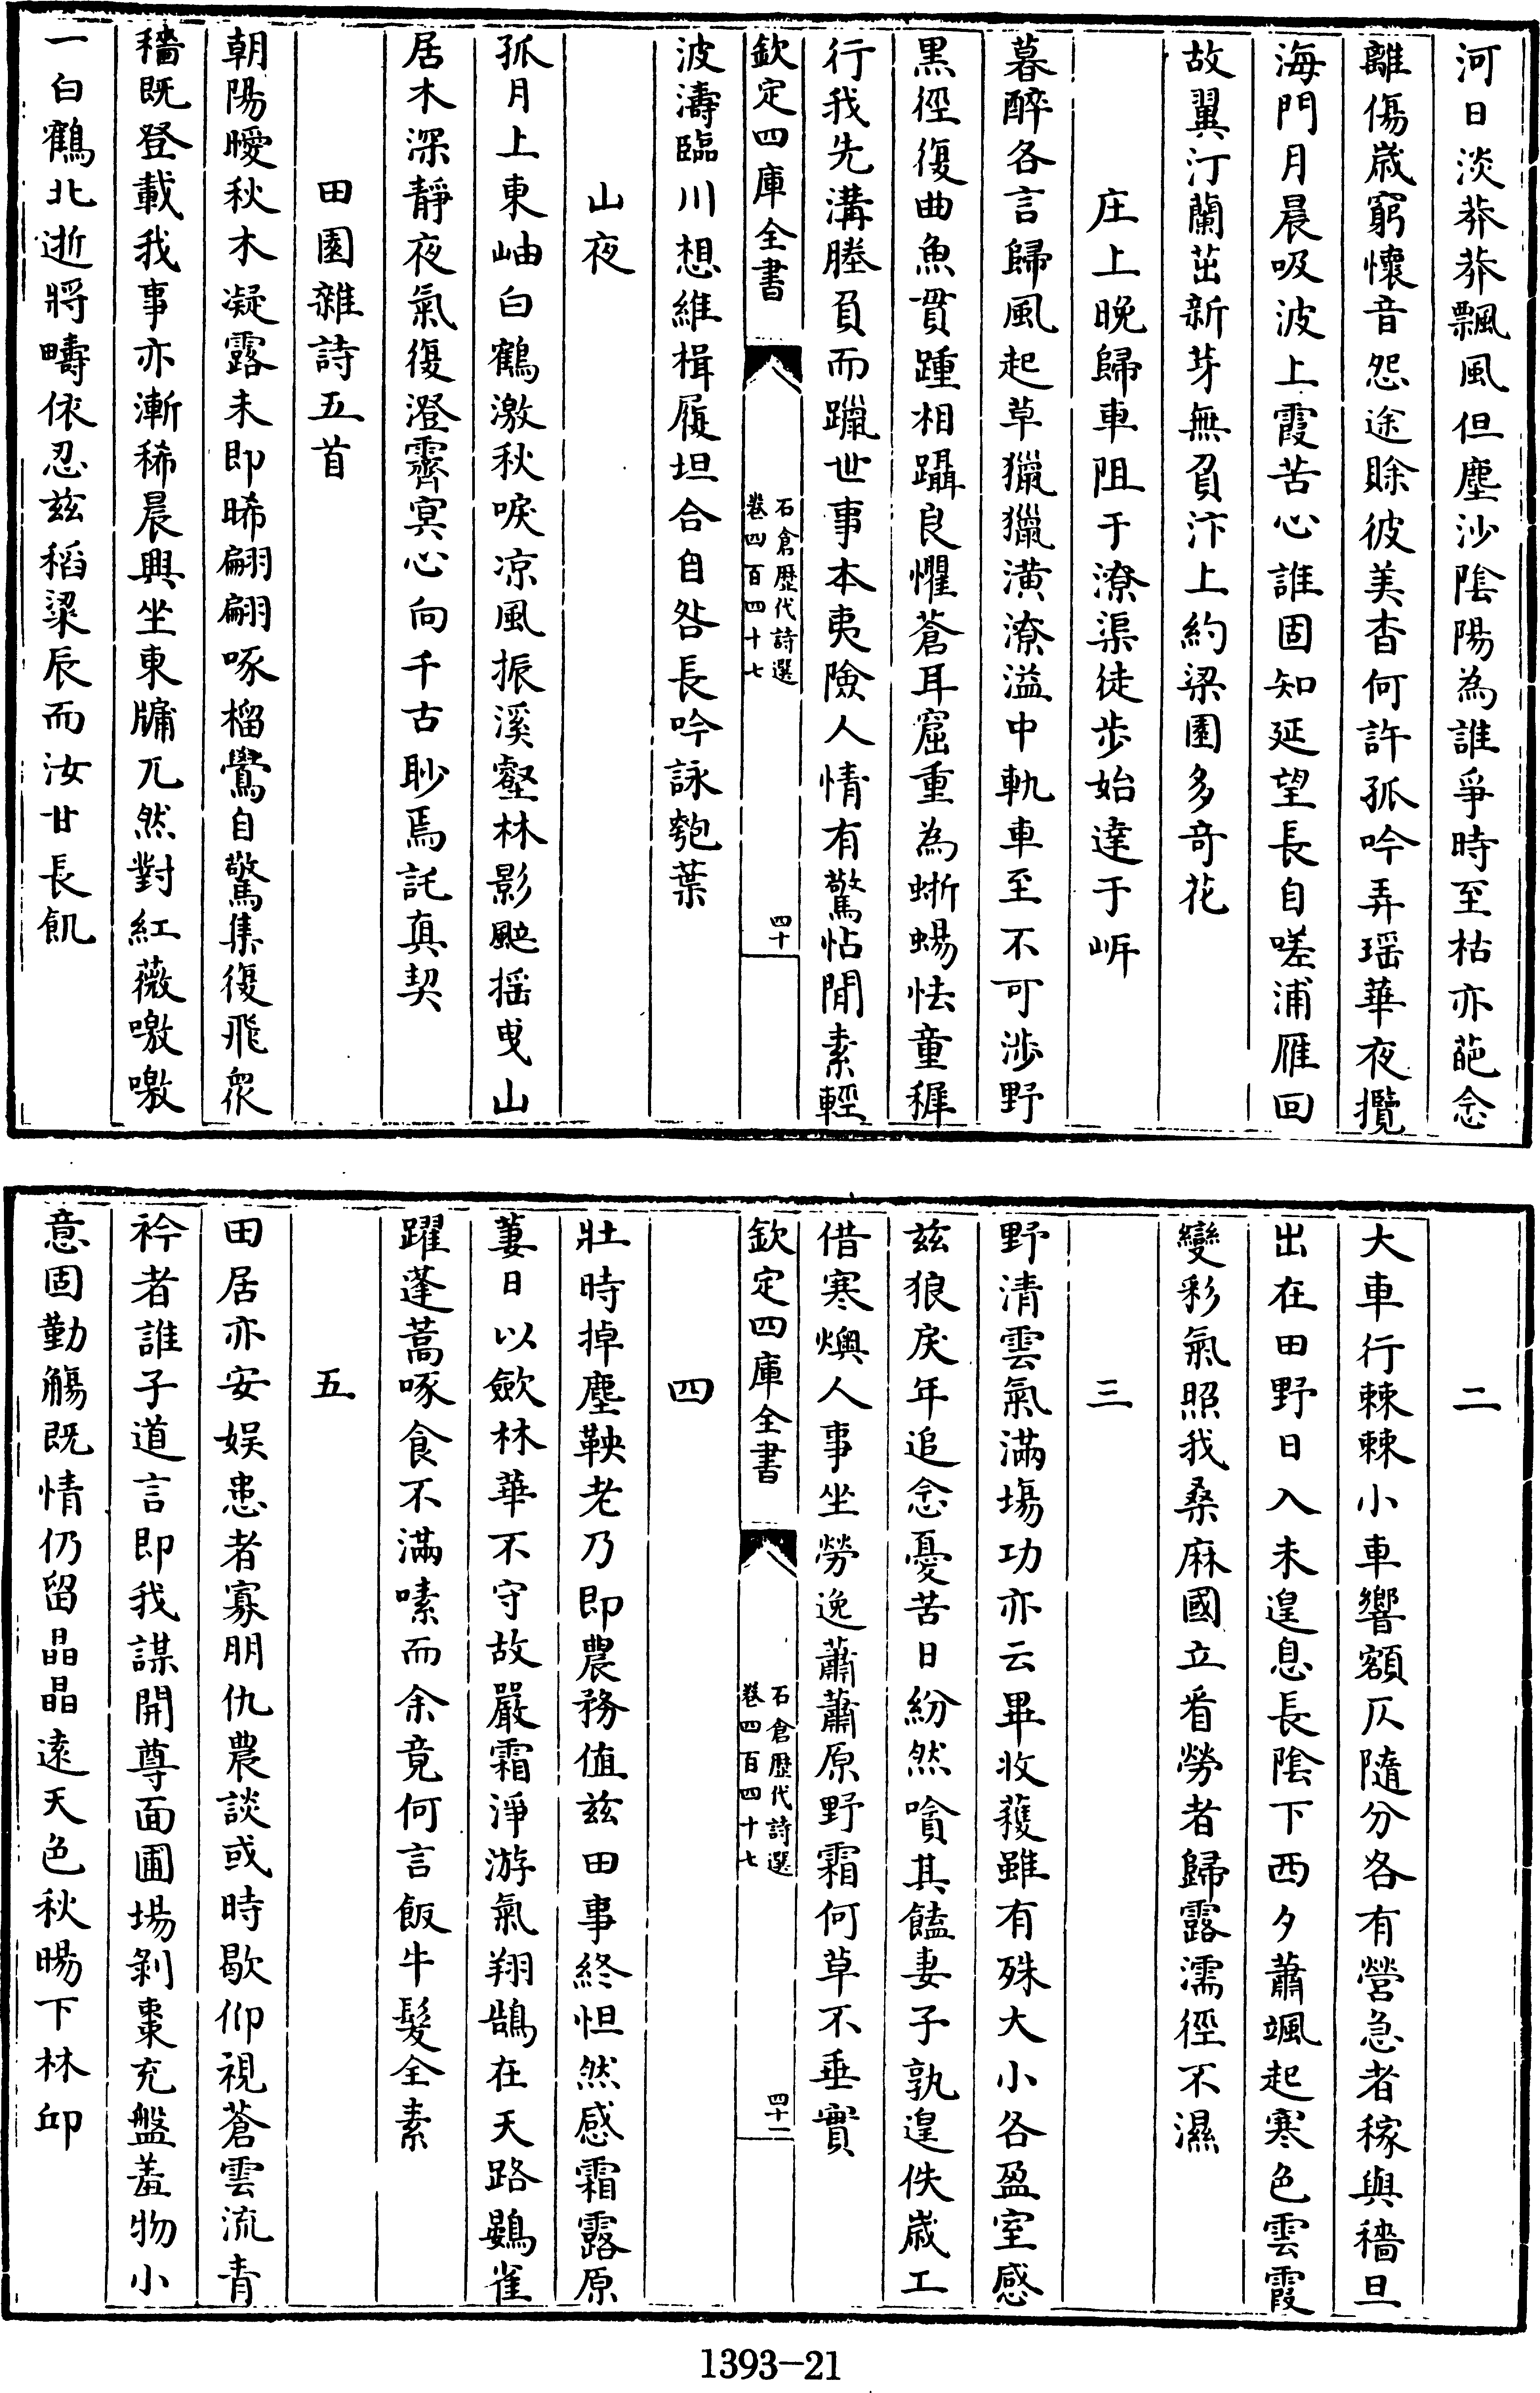 河日淡莽莽飄風但塵沙陰陽為誰爭時至枯亦葩念
離傷歳窮懐音怨途賖彼美杳何許孤吟弄瑶華夜攬
海門月晨吸波上霞苦心誰固知延望長自嗟浦雁回
故翼汀蘭茁新芽無負汴上約梁園多奇花
庄上晩歸車阻于潦渠徒歩始達于岍
暮醉各言歸風起草獵獵潢潦溢中軌車至不可渉野
黒徑復曲魚貫踵相躡良懼蒼耳窟重為蜥蜴怯童穉
行我先溝塍負而躐世事本夷險人情有驚怗閒素輕
欽定四庫全書
石倉歴代詩選
卷四百四十七
四十
波濤臨川想維楫履坦合自咎長吟詠匏葉
山夜
孤月上東岫白鶴激秋唳凉風振溪壑林影颭摇曳山
居木深靜夜氣復澄霽㝠心向千古眇焉託真契
田園雜詩五首
朝陽曖秋木凝露未即晞翩翩啄榴鸎自驚集復飛衆
穡既登載我事亦漸稀晨興坐東牗兀然對紅薇噭噭
一白鶴北逝將疇依忍兹稻梁辰而汝甘長飢
二
大車行棘棘小車響額仄隨分各有營急者稼與穡旦
出在田野日入未遑息長陰下西夕蕭颯起寒色雲霞
變彩氣照我桑麻國立㸔勞者歸露濡徑不濕
三
野清雲氣滿塲功亦云畢收蓰雖有殊大小各盈室感
兹狼戾年追念憂苦日紛然喰其饁妻子孰遑佚歳工
借寒燠人事坐勞逸蕭蕭原野霜何草不垂實
欽定四庫全書
石倉歴代詩選
卷四百四十七
四十一
四
壯時掉塵鞅老乃即農務值兹田事終怛然感霜露原
萋日以歛林華不守故嚴霜淨游氣翔鵠在天路鷃雀
躍蓬蒿啄食不滿嗉而余竟何言飯牛髮全素
五
田居亦安娱患者寡朋仇農談或時歇仰視蒼雲流青
衿者誰子道言即我謀開尊面圃塲剥棗充盤羞物小
意固勤觴既情仍留晶晶逺天色秋暘下林邱
1393-21